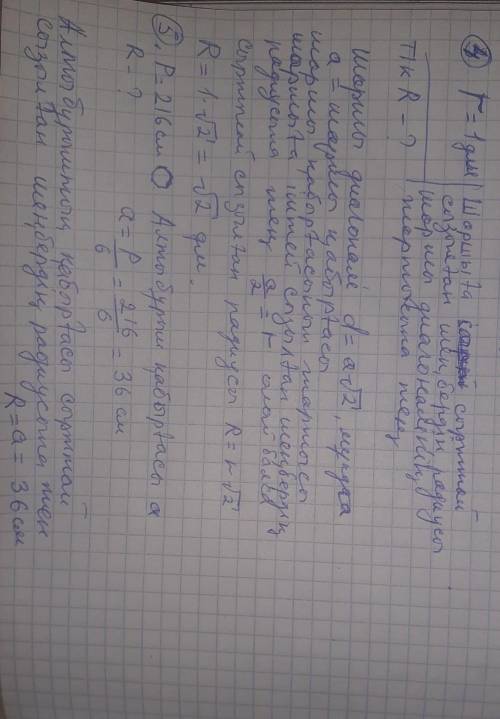 ④ r = 1 дм Шаршыға сырттай
сызылған шеңбердің радиусы
ТІК R - ? шаршы диагоналінің
жартысына тең
Шаршы диагоналі d = a√2, мұндағы
a = шаршы қабырғасы
шаршы қабырғасының жартысы
шаршыға іштей сызылған шеңбердің
радиусына тең a/2 = r олай болса
сырттай сызылған радиусы R = r√2
R = 1·√2 = √2 дм.
⑤. P = 216 см Алтыбұрыш қабырғасы a
R - ? a = P/6 = 216/6 = 36 см
Алтыбұрыштың қабырғасы сырттай
сызылған шеңбердің радиусына тең
R = a = 36 см